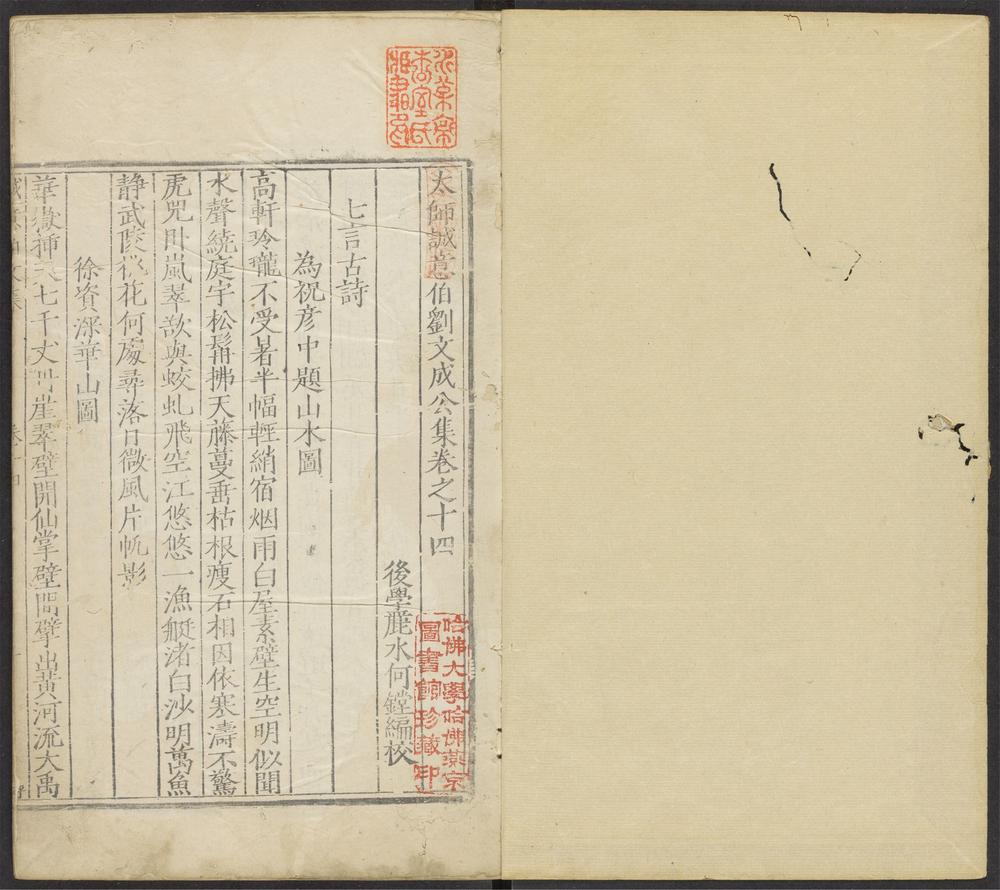 太師誠意伯劉文成公集卷之十四
後學麗水何鏜編校
七言古詩
為祝彦中題山水圖
高軒玲瓏不受暑半幅輕綃宿烟雨白屋素壁生空明似聞
水聲繞庭宇松髯拂天藤蔓垂枯根瘦石相因依寒濤不驚
虎兕卧嵐翠歘與蛟虬飛空江悠悠一漁艇渚白沙明萬魚
靜武陵桃花何處尋落日微風片帆影
徐資深華山圖
華嶽插天七千丈丹崖翠壁開仙掌壁間擘出黃河流大禹
哈佛大學哈佛燕京
圖書館珍藏印